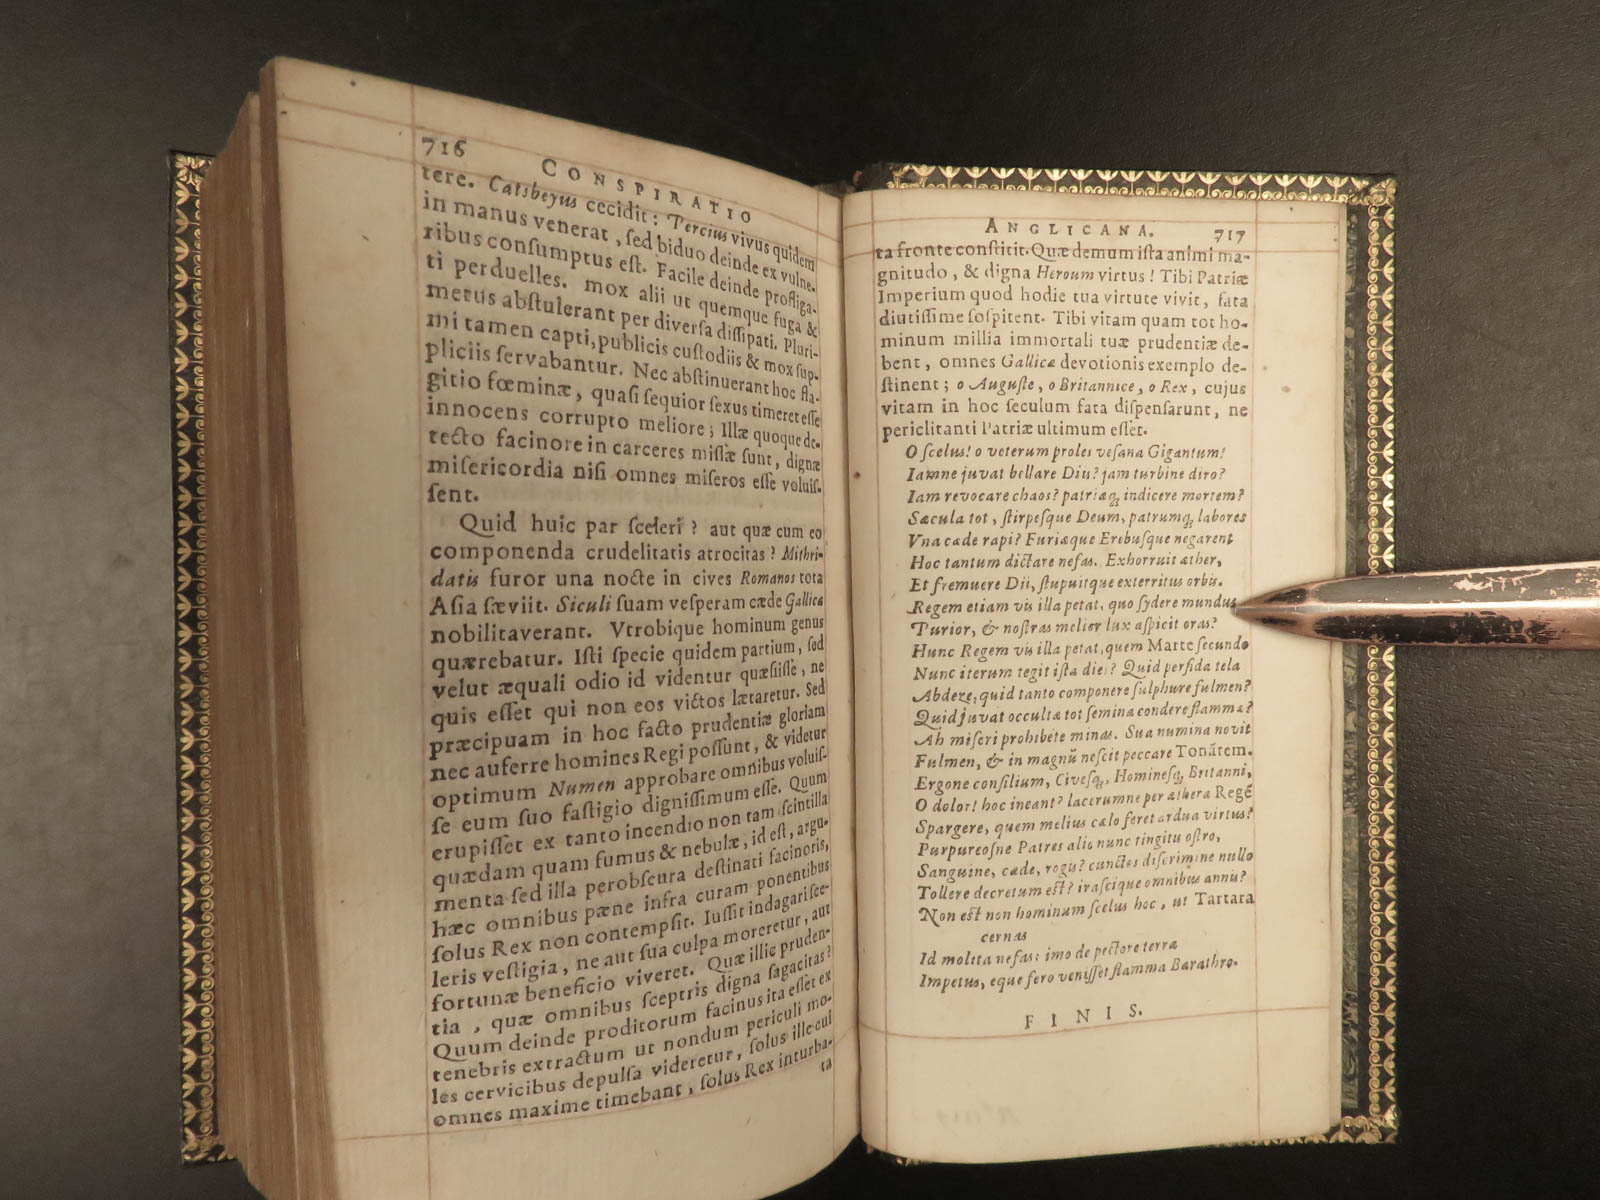 716
CONSPIRATIO
tere. Catsbeyus cecidit: Percius vivus quidem
in manus venerat, ſed biduo deinde ex vulne-
ribus conſumptus eſt. Facile deinde profliga-
ti perduelles. mox alii ut quemque fuga &
metus abſtulerant per diverſa diſſipati. Pluri-
mi tamen capti, publicis cuſtodiis & mox ſup-
pliciis ſervabantur. Nec abſtinuerant hoc fla-
gitio fœminæ, quaſi ſequior ſexus timeret eſſe
innocens corrupto meliore; Illæ quoque de-
tecto facinore in carceres miſſæ ſunt, dignæ
miſericordia niſi omnes miſeros eſſe voluiſ-
ſent.
Quid huic par ſceleri? aut quæ cum eo
componenda crudelitatis atrocitas? Mithri-
datis furor una nocte in cives Romanos tota
Aſia ſæviit. Siculi ſuam veſperam cæde Gallica
nobilitaverant. Vtrobique hominum genus
quærebatur. Iſti ſpecie quidem partium, ſed
velut æquali odio id videntur quæſiiſſe, ne
quis eſſet qui non eos victos lætaretur. Sed
præcipuam in hoc facto prudentiæ gloriam
nec auferre homines Regi poſſunt, & videtur
optimum Numen approbare omnibus voluiſ-
ſe eum ſuo faſtigio digniſſimum eſſe. Quum
erupiſſet ex tanto incendio non tam ſcintilla
quædam quam fumus & nebulæ, id eſt, argu-
menta ſed illa perobſcura deſtinati facinoris,
hæc omnibus pæne infra curam ponentibus
ſolus Rex non contempſit. Iuſſit indagari ſce-
leris veſtigia, ne aut ſua culpa moreretur, aut
fortunæ beneficio viveret. Quæ illic pruden-
tia, quæ omnibus ſceptris digna ſagacitas?
Quum deinde proditorum facinus ita eſſet ex
tenebris extractum ut nondum periculi mo-
les cervicibus depulſa videretur, ſolus ille cui
omnes maxime timebant, ſolus Rex inturba-
ta
ANGLICANA.
717
ta fronte conſtitit. Quæ demum iſta animi ma-
gnitudo, & digna Heroum virtus! Tibi Patriæ
Imperium quod hodie tua virtute vivit, fata
diutiſſime ſoſpitent. Tibi vitam quam tot ho-
minum millia immortali tuæ prudentiæ de-
bent, omnes Gallicæ devotionis exemplo de-
ſtinent; o Auguſte, o Britannice, o Rex, cujus
vitam in hoc ſeculum fata diſpenſarunt, ne
periclitanti Patriæ ultimum eſſet.
O ſcelus! o veterum proles veſana Gigantum!
Iamne juvat bellare Diu? jam turbine diro?
Iam revocare chaos? patriæq; indicere mortem?
Sæcula tot, ſtirpeſque Deum, patrumq; labores
Vna cæde rapi? Furiæque Erebuſque negarent
Hoc tantum dictare nefas. Exhorruit æther,
Et fremuere Dii, ſtupuitque exterritus orbis.
Regem etiam vis illa petat, quo ſydere mundus
Turior, & noſtras melior lux aſpicit oras?
Hunc Regem vis illa petat, quem Marte ſecundo
Nunc iterum tegit iſta dies? Quid perfida tela
Abdere, quid tanto componere ſulphure fulmen?
Quid juvat occultæ tot ſemina condere flammæ?
Ah miſeri prohibete minas. Sua numina novit
Fulmen, & in magnū neſcit peccare Tonātem.
Ergone conſilium, Civeſq;, Homineſq; Britanni,
O dolor! hoc ineant? lacerumne per æthera Regē
Spargere, quem melius cælo feret ardua virtus?
Purpureoſne Patres alio nunc tingitu oſtro,
Sanguine, cæde, rogis? cunctos diſcrimine nullo
Tollere decretum eſt? iraſcique omnibus annis?
Non eſt non hominum ſcelus hoc, ut Tartara
cernas
Id molita nefas: imo de pectore terræ
Impetus, eque fero veniſſet flamma Barathro.
FINIS.